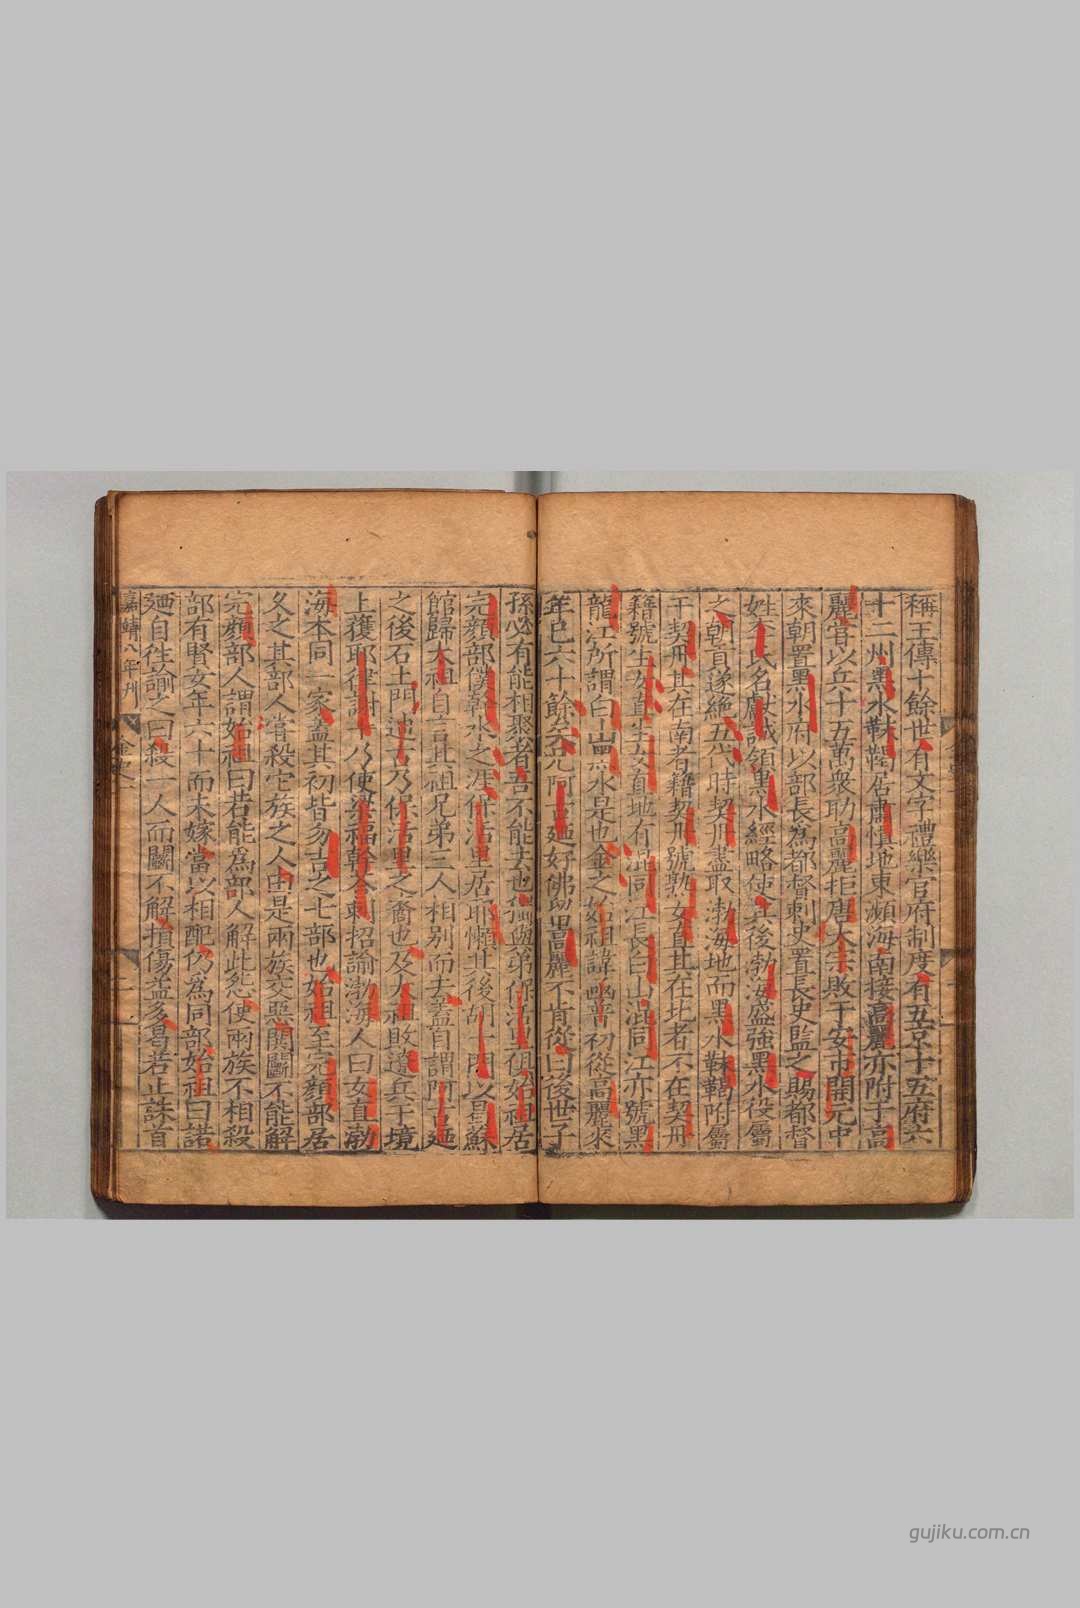 稱王傳十餘世有文字禮樂官府制度有五京十五府六
十二州黑水靺鞨居肅慎地東瀕海南接高麗亦附于高
麗官以兵十五萬衆助高麗拒唐太宗敗于安市開元中
來朝置黑水府以部長爲都督刺史置長史監之賜都督
姓李氏名獻誠領黑水經略使其後渤海盛強黑水役屬
之朝貢遂絕五代時契丹盡取渤海地而黑水靺鞨附屬
于契丹其在南者籍契丹號熟女直其在北者不在契丹
籍號生女直生女直地有混同江長白山混同江亦號黑
龍江所謂白山黑水是也金之始祖諱函普初從高麗來
年已六十餘矣兄阿古廼好佛留高麗不肯從曰後世子
孫必有能相聚者吾不能去也獨與弟保活里俱始祖居
完顔部僕幹水之涯保活里居耶懶其後胡十門以曷蘇
館歸太祖自言其祖兄弟三人相别而去蓋自謂阿古廼
之後石土門迪古乃保活里之裔也及太祖敗遼兵于境
上獲耶律謝十乃使梁福斡荅剌招諭渤海人曰女直渤
海本同一家蓋其初皆勿吉之七部也始祖至完顔部居
久之其部人嘗殺它族之人由是兩族交惡鬨鬬不能解
完顔部人謂始祖曰若能爲部人解此怨使兩族不相殺
部有賢女年六十而未嫁當以相配仍爲同部始祖曰諾
廼自往諭之曰殺一人而鬬不解損傷益多曷若止誅首
嘉靖八年刋
金史一